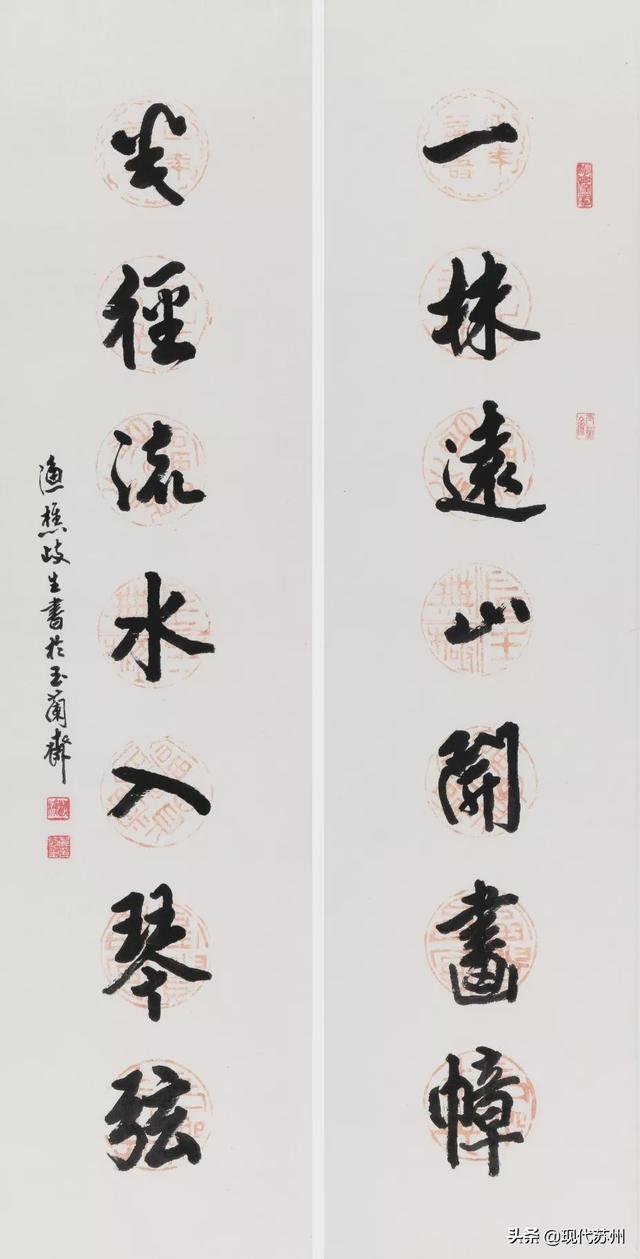 一抹遠山開畫幛
半徑流水入琴弦
漁樵歧生書於玉蘭齋
头条 @现代苏州